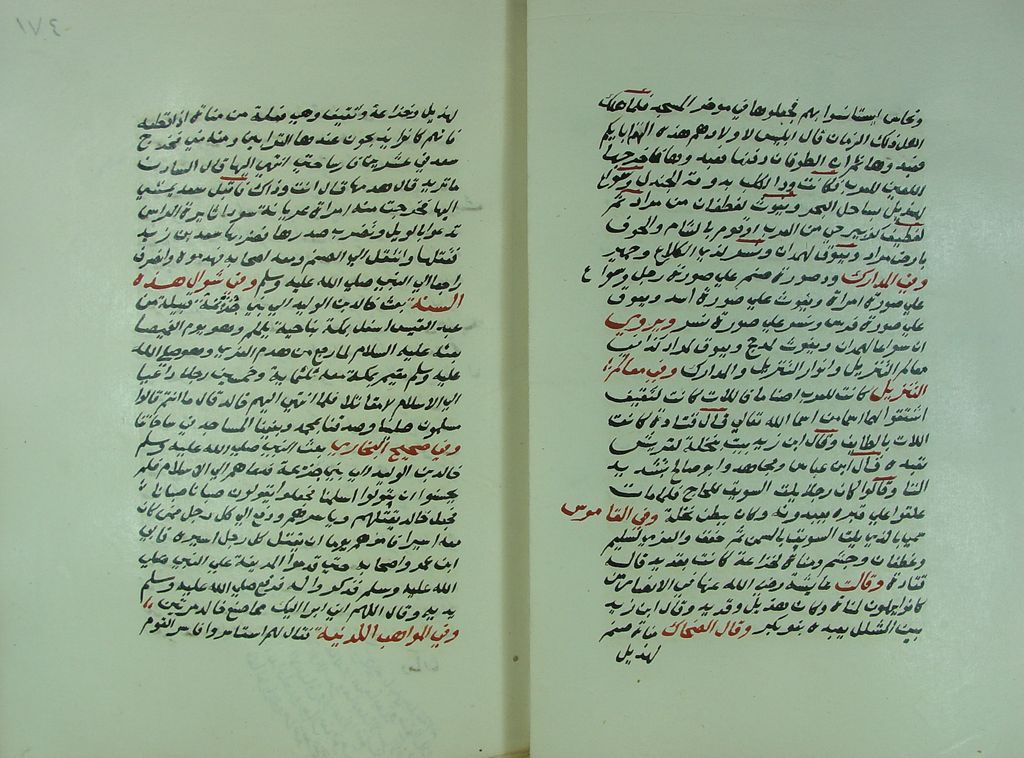 ونحاس ليستانسوا بهم فجعلوها في موضع المسجد فلما هلك
اهل ذلك الزمان قال ابليس لاولادهم هذه الهة ابايكم
فعبدوها ثم ان الطوفان دفنها فاخرجها
اللعين للعرب فكانت ود لكلب بدومة الجندل وسواع
لهذيل بساحل البحر ويغوث لغطفان من مراد ثم
لغطيف بالجرف
بارض مراد ويعوق لهمدان ونسر لذي الكلاع وحمير
وفي المدارك ود صورة صنم علي صورة رجل وسواع
علي صورة امراة ويغوث علي صورة اسد ويعوق
علي صورة فرس ونسر علي صورة نسر ويروي
ان سواعا لهمدان ويغوث لمذحج ويعوق لمراد كذا في
معالم التنزيل وانوار التنزيل والمدارك وفي معالم
التنزيل كانت للعرب اصنام فاللات كانت لثقيف
اشتقوا لها اسما من اسم الله تعالي قال قتادة كانت
اللات بالطايف وقال ابن زيد بيت بنخلة لقريش
تعبده قال ابن عباس ومجاهد وابو صالح بتشديد
التا وقالوا كان رجلا يلت السويق للحاج فلما مات
عكفوا علي قبره يعبدونه وكان ببطن نخلة وفي القاموس
سمي بالذي يلت السويق بالسمن ثم خفف والعزي لسليم
وغطفان وجشم ومناة لخزاعة كانت بقديد قاله
قتادة وقالت عايشة رضي الله عنها في الانصار
كانوا يهلون لمناة وكانت حذو قديد وقال ابن زيد
بيت بالمشلل يعبده بنو بكر وقال الضحاك مناة صنم
لهذيل
لهذيل وخزاعة وثقيف وهي فعلة من مناه اذا قطعه
فانهم كانوا يذبحون عندها القرابين ومنه مني فخرج
سعد في عشرين فارسا حتي انتهي اليها قال السادن
ما تريد قال هدمها قال انت وذاك فاقبل سعد يمشي
اليها فخرجت منه امراة عريانة سودا ثايرة الراس
تدعوا بالويل وتضرب صدرها فضربها سعد بن زيد
فقتلها واقبل الي الصنم ومعه اصحابه فهدموه وانصرف
راجعا الي النبي صلي الله عليه وسلم وفي شوال هذه
السنة بعث خالد بن الوليد الي بني جذيمة قبيلة من
عبد القيس اسفل مكة بناحية يلملم وهو يوم الغميصا
بعثه عليه السلام لما رجع من هدم العزي وهو صلي الله
عليه وسلم مقيم بمكة معه ثلثماية وخمسين رجلا داعيا
الي الاسلام لا مقاتلا فلما انتهي اليهم خالد قال ما انتم قالوا
مسلمون صلينا وصدقنا بمحمد وبنينا المساجد في ساحاتنا
وفي صحيح البخاري بعث النبي صلي الله عليه وسلم
خالد بن الوليد الي بني جذيمة فدعاهم الي الاسلام فلم
يحسنوا ان يقولوا اسلمنا فجعلوا يقولون صبانا صبانا
فجعل خالد يقتلهم وياسرهم ودفع الي كل رجل ممن كان
معه اسيرا فامرهم يوما ان يقتل كل رجل اسيره فابي
ابن عمر واصحابه حتي قدموا المدينة علي النبي صلي
الله عليه وسلم فذكروا له فرفع صلي الله عليه وسلم
يديه وقال اللهم اني ابرا اليك مما صنع خالد مرتين
وفي المواهب اللدنية فقال لهم استاسروا فاستاسر القوم